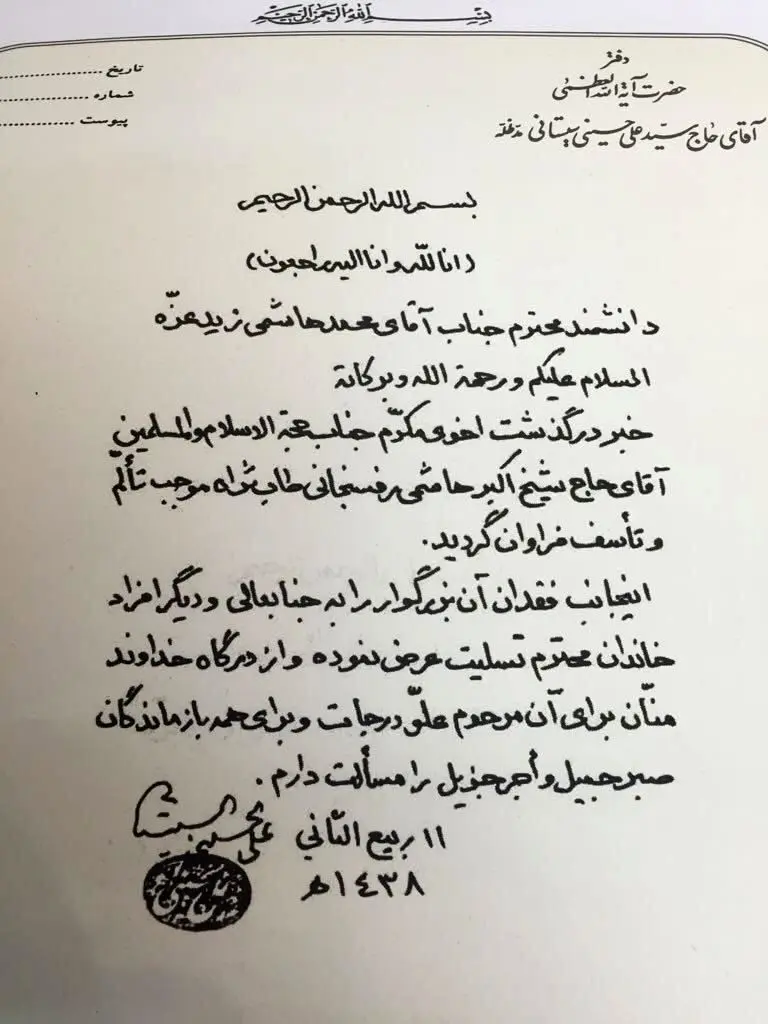 بسم الله الرحمن الرحیم
دفتر
حضرت آیة الله العظمی
آقای حاج سید علی حسینی سیستانی مدّظلّه
تاریخ ....................
شماره ....................
پیوست ....................
بسم الله الرحمن الرحیم
(انا للّٰه وانا الیه راجعون)
دانشمند محترم جناب آقای محمد هاشمی زید عزّه
السلام علیکم ورحمة الله وبرکاته
خبر درگذشت اخوی مکرّم جناب حجة الاسلام والمسلمین
آقای حاج شیخ اکبر هاشمی رفسنجانی طاب ثراه موجب تألّم
و تأسف فراوان گردید.
اینجانب فقدان آن بزرگوار را به جنابعالی و دیگر افراد
خاندان محترم تسلیت عرض نموده و از درگاه خداوند
منّان برای آن مرحوم علوّ درجات و برای همه بازماندگان
صبر جمیل و أجر جزیل را مسألت دارم.
علی الحسینی السیستانی
١١ ربیع الثّاني
١٤٣٨ه